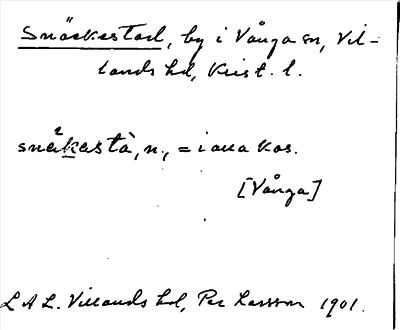 Snäckestad, by i Vånga sn, Vil-
lands hd, Krist. l.
snèkastà, n., = i alla kas.
[Vånga]
L A L. Villands hd, Per Larsson 1901.